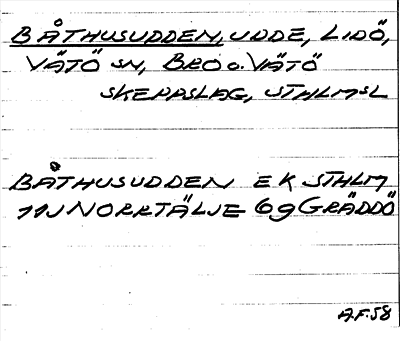 BÅTHUSUDDEN, UDDE, LIDÖ,
VÄTÖ SN, BRO o. VÄTÖ
SKEPPSLAG, STHLMSL
BÅTHUSUDDEN EK STHLM
11J NORRTÄLJE 6g GRÄDDÖ
A.F. 58